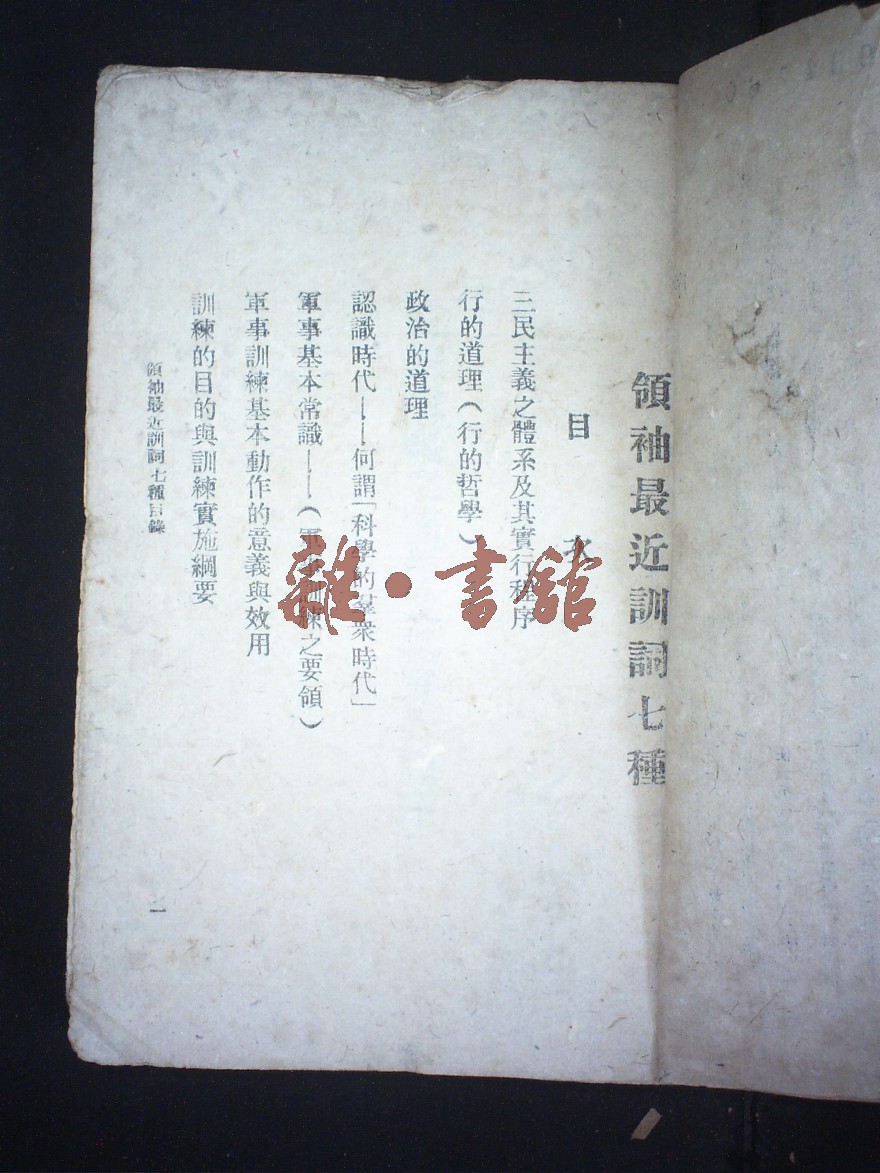 領袖最近訓詞七種
目次
三民主義之體系及其實行程序
行的道理(行的哲學)
政治的道理
認識時代——何謂「科學的羣衆時代」
軍事基本常識——(軍事訓練之要領)
軍事訓練基本動作的意義與效用
訓練的目的與訓練實施綱要
領袖最近訓詞七種目錄
一
雜·書館